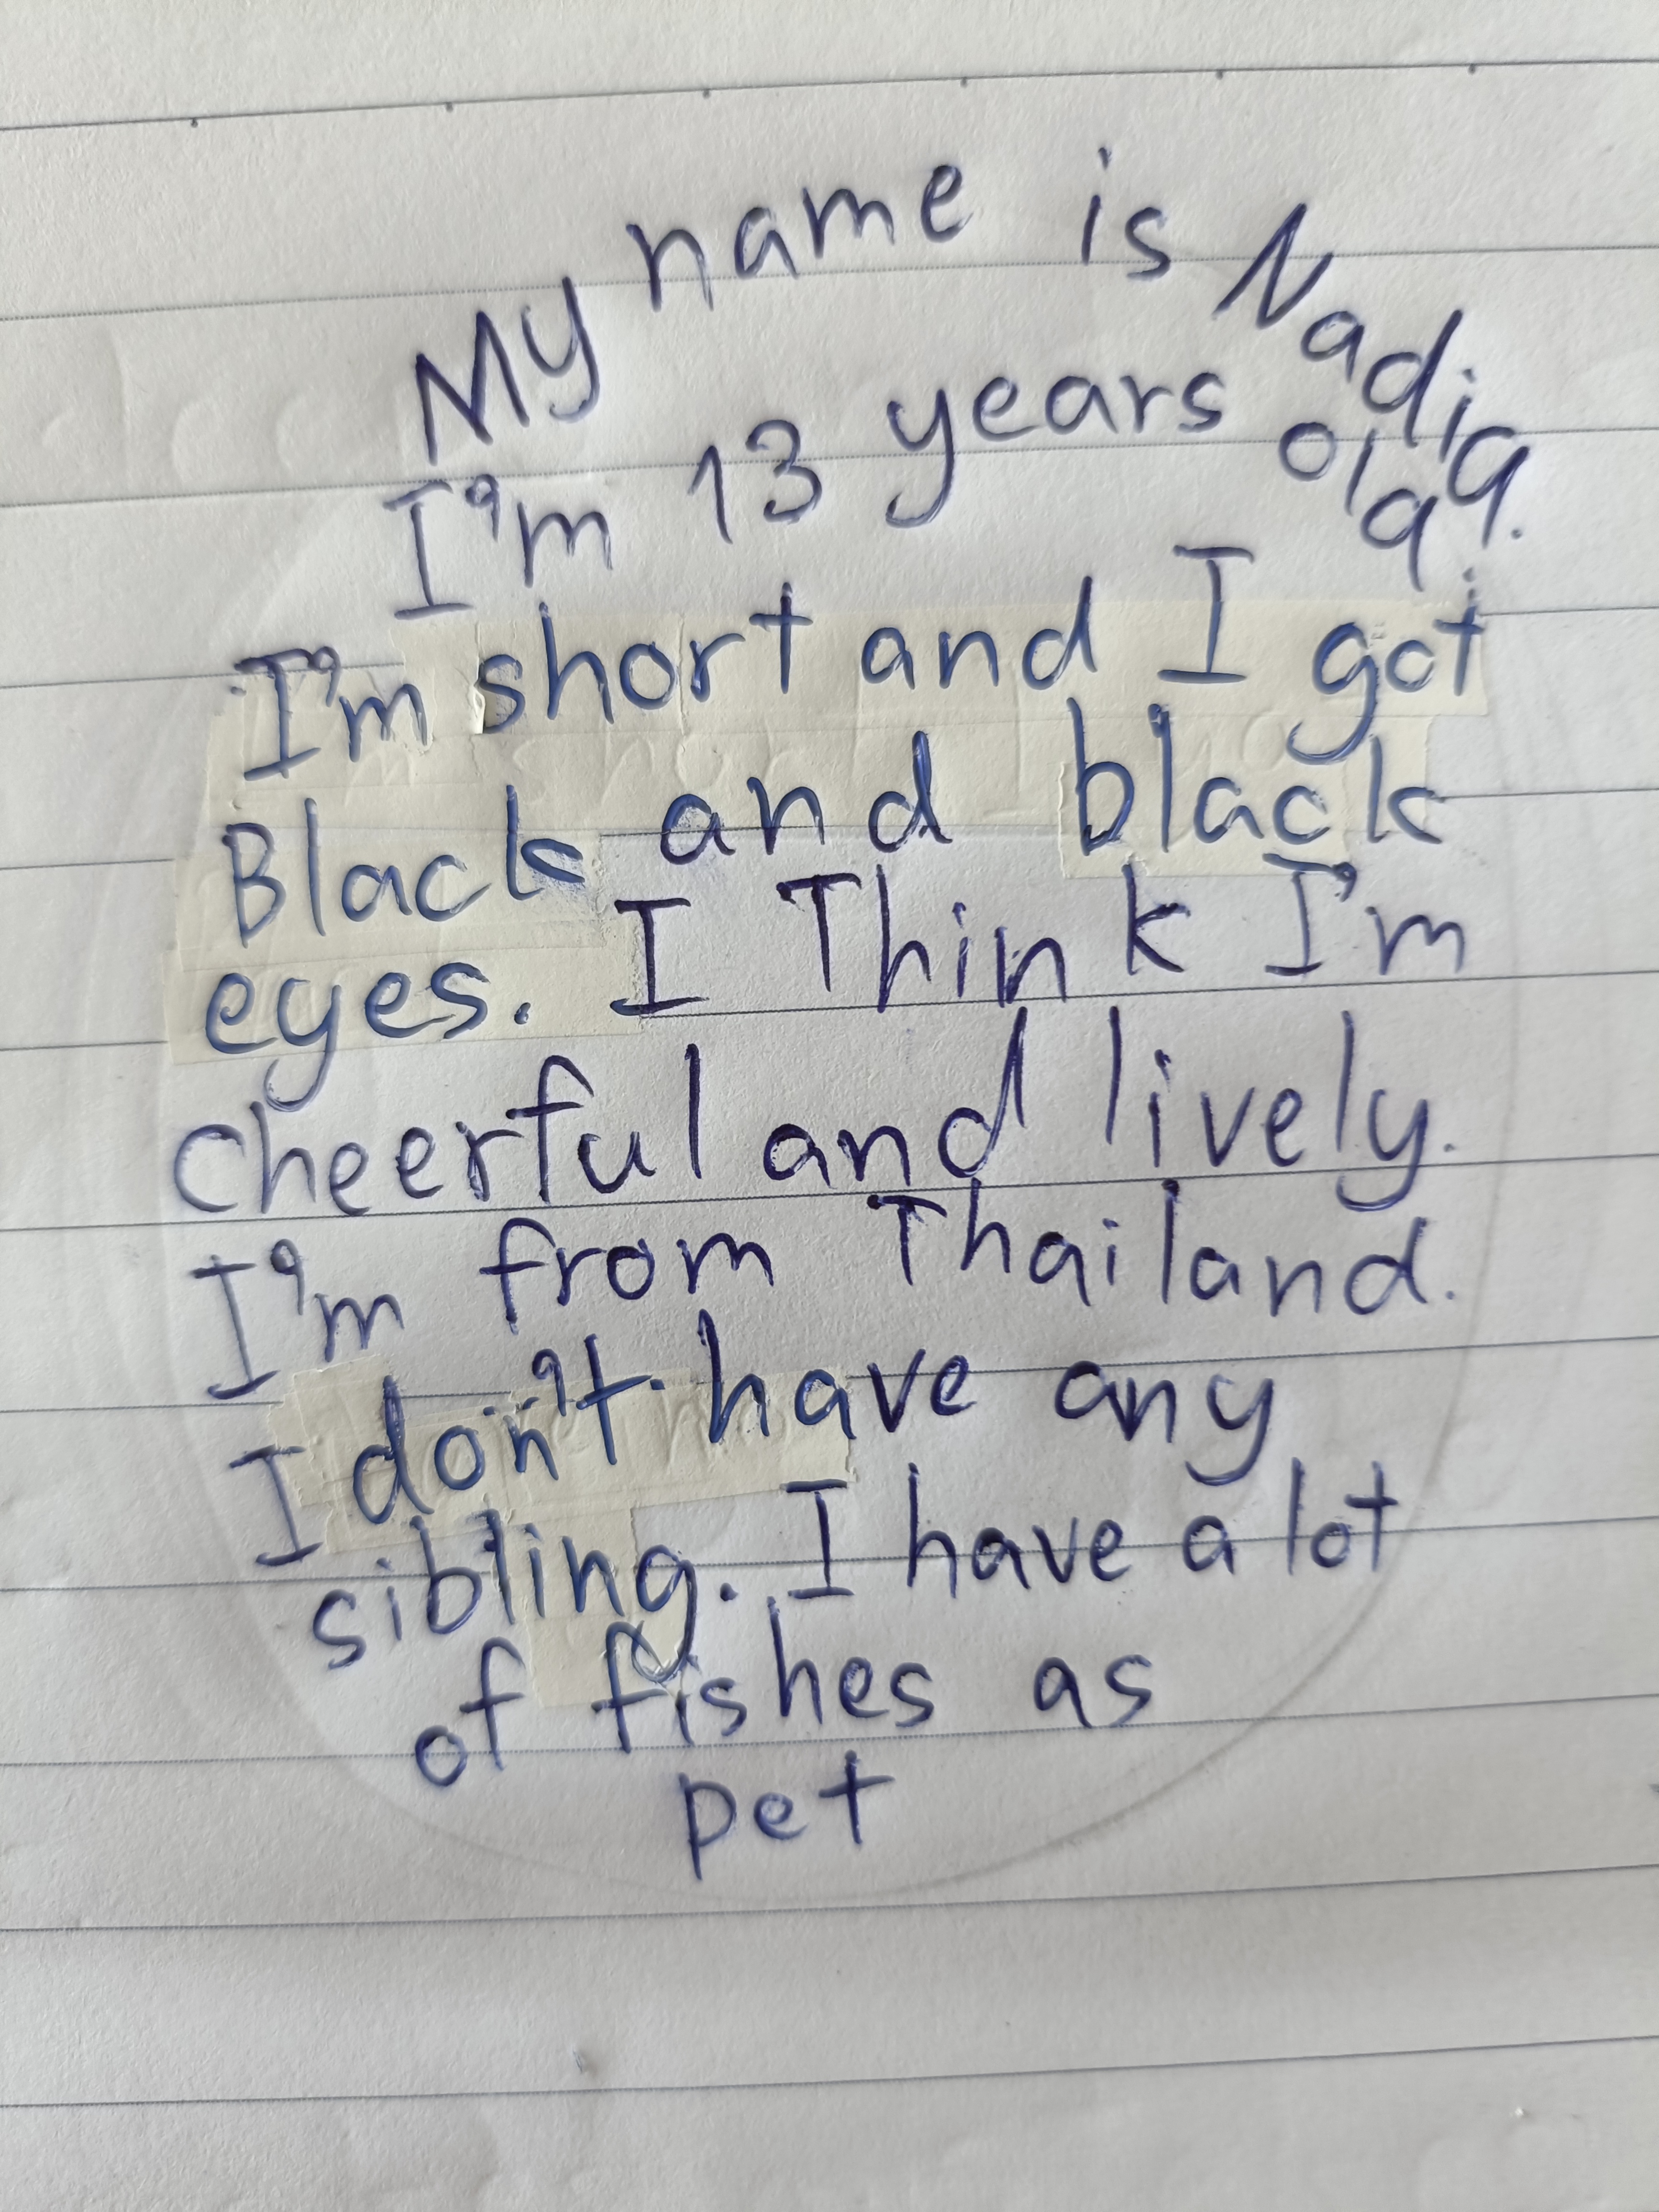 My name is Nadia.
I'm 13 years old.
I'm short and I got
Black and black
eyes. I Think I'm
cheerful and lively.
I'm from Thailand.
I don't have any
sibling. I have a lot
of fishes as
pet